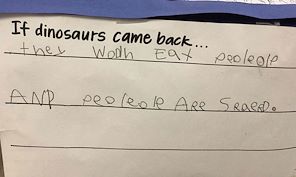 If dinosaurs came back...
they Wodh EAt peoleole
AND peoleole Are Scaerd.